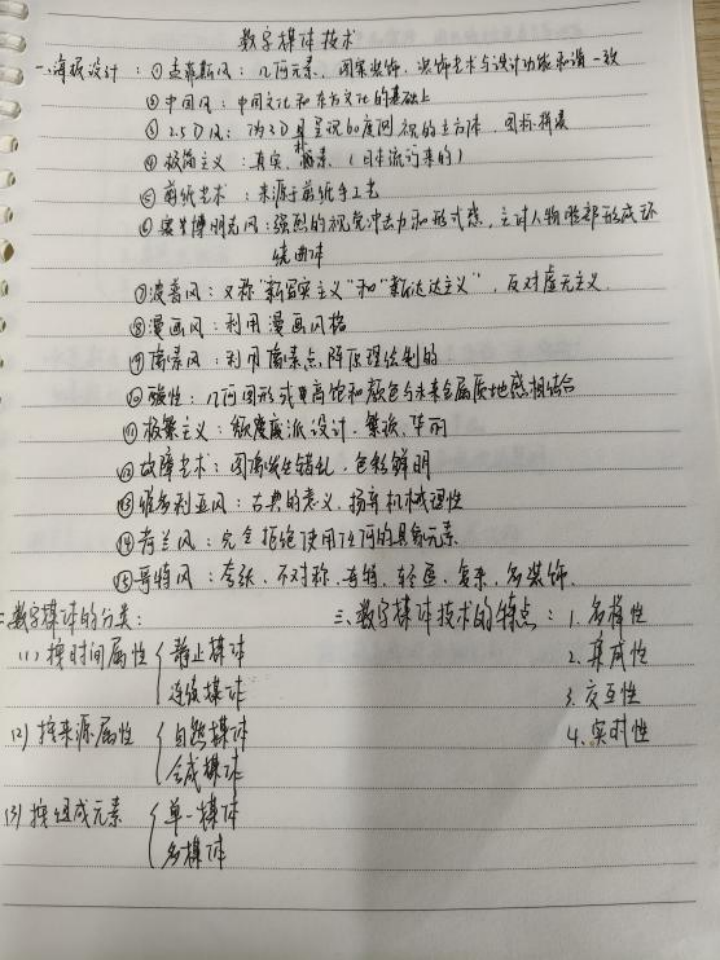 数字媒体技术
一、海报设计：①孟菲斯风：几何元素、图案装饰，装饰艺术与设计功能和谐一致
②中国风：中国文化和东方文化的基础上
③2.5D风：伪3D 呈现60度网视的立方体，图标拼凑
④极简主义：真实、朴素（日本流行来的）
⑤剪纸艺术：来源于剪纸手工艺
⑥赛博朋克风：强烈的视觉冲击力和形式感，主对人物脸部形成环
绕曲体
⑦波普风：又称“新写实主义”和“新达达主义”，反对虚无主义.
⑧漫画风：利用漫画风格
⑨像素风：利用像素点阵原理绘制的
⑩酸性：几何图形或更高饱和颜色与未来金属质地感相结合
⑪极繁主义：颓废派设计、繁琐、华丽
⑫故障艺术：图像发生错乱、色彩鲜明
⑬维多利亚风：古典的意义、扬弃机械理性
⑭荷兰风：完全拒绝使用任何的具象元素
⑮哥特风：夸张、不对称、奇特、轻盈、复杂、多装饰.
二、数字媒体的分类：
(1) 按时间属性 静止媒体
连续媒体
(2) 按来源属性 自然媒体
合成媒体
(3) 按组成元素 单一媒体
多媒体
三、数字媒体技术的特点：1. 多样性
2. 集成性
3. 交互性
4. 实时性